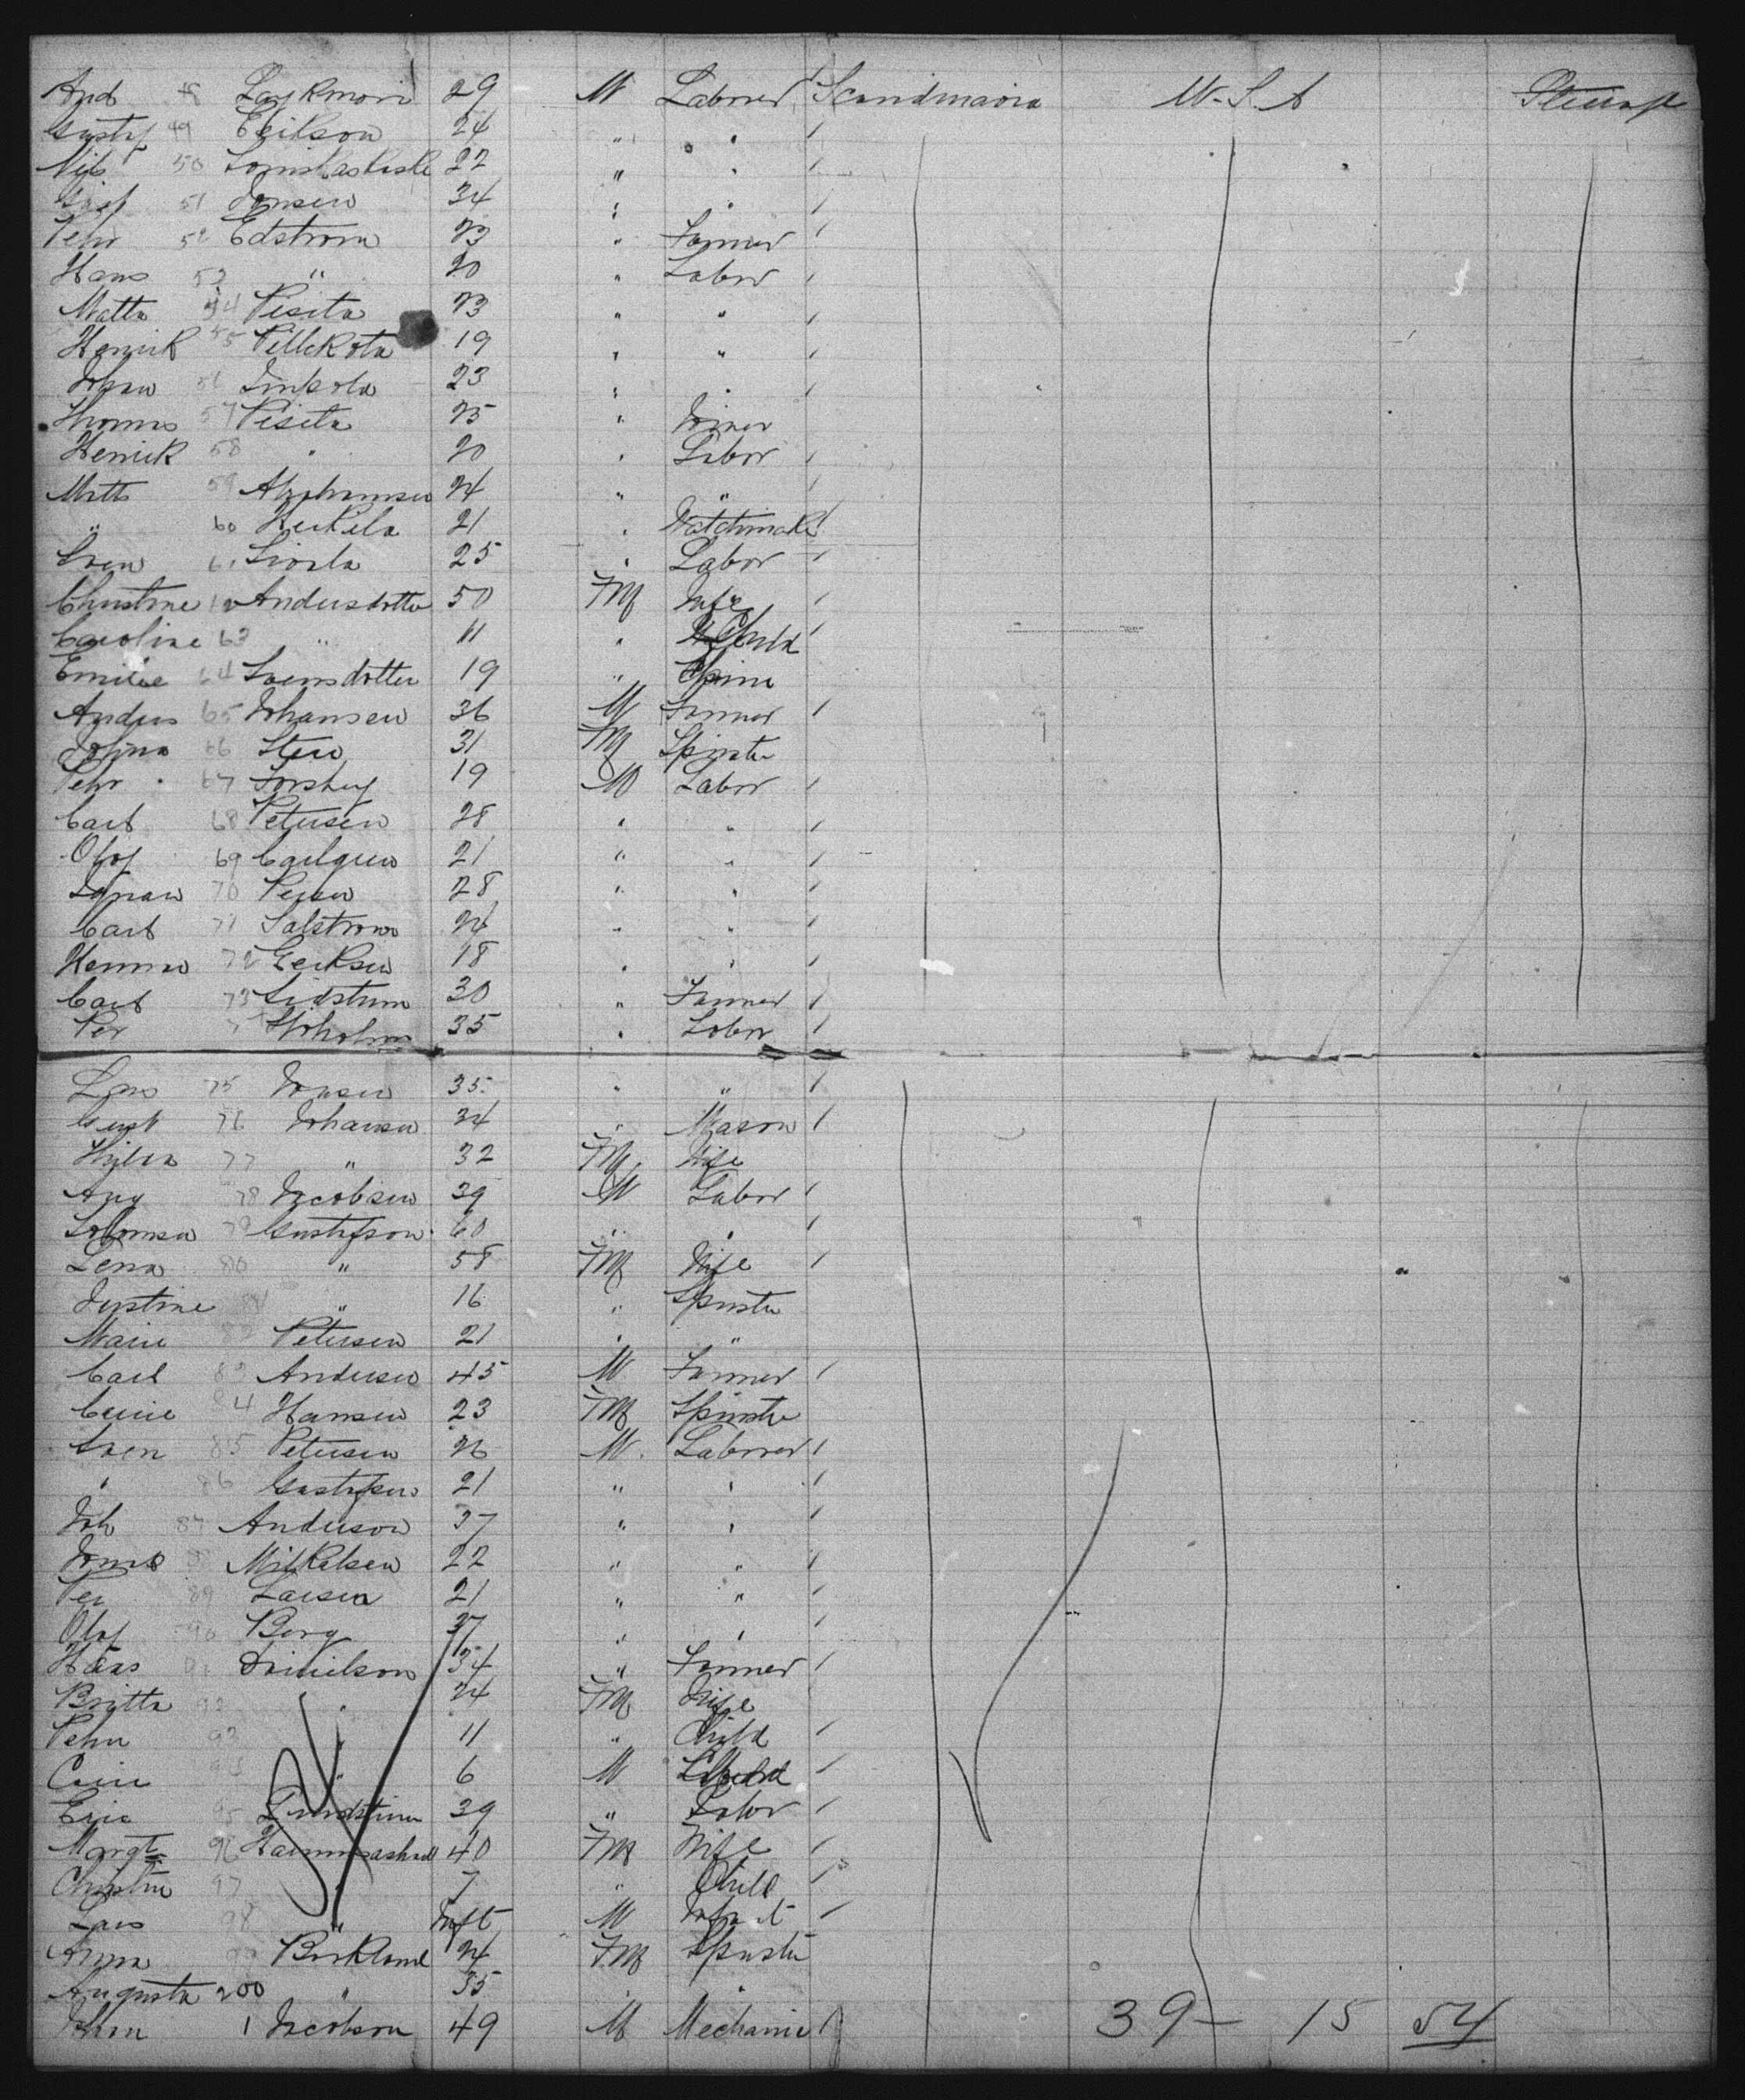 And 48 29 M Laborer Scandinavia U.S.A
Gustaf 49 Erikson 24 " "
Nils 50 22 " "
51 Jonsen 34 " "
Pehr 52 Edstrom 23 " Farmer
Hans 53 " 20 " Labor
Matts 54 Pesita 23 " "
Henrik 55 Pillkota 19 " "
Johan 56 23 " "
Thomas 57 Pesita 25 " Joiner
Henrik 58 " 20 " Labor
Matts 59 Abrahamsen 24 " "
" 60 Heikela 21 " Watchmake
Sven 61 25 " Labor
Christine 62 Andersdotter 50 Fm Wife
Caroline 63 " 11 " Child
Emilie 64 Svensdotter 19 "
Anders 65 Johansen 36 M Farmer
66 Sten 31 Fm Spinster
Pehr 67 Forsberg 19 M Labor
Carl 68 Petersen 28 " "
Olof 69 Carlgren 21 " "
Johan 70 28 " "
Carl 71 Salstrom 24 " "
Herman 72 Eriksen 18 " "
Carl 73 Lidstrom 30 " Farmer
Per 74 35 " Labor
Lars 75 Jonsen 35 " "
Gust 76 Johansen 34 " Mason
Hilda 77 " 32 Fm Wife
Aug 78 Jacobsen 39 M Labor
Solomon 79 Gustafson 60 " "
Lena 80 " 58 Fm Wife
Justine 81 " 16 " Spinster
Marie 82 Petersen 21 " "
Carl 83 Andersen 45 M Farmer
84 Hansen 23 Fm Spinster
Sven 85 Petersen 26 M Laborer
" 86 Gustafsen 21 " "
Joh 87 Anderson 37 " "
Jonas 88 Mikkelsen 22 " "
Per 89 Larsen 21 " "
Olof 90 Berg 37 " "
Hans 91 Danielson 34 " Farmer
Britta 92 " 24 Fm Wife
93 " 11 " Child
94 " 6 M Child
Eric 95 Lundstrom 39 " Labor
Margt 96 40 Fm Wife
Christine 97 " 7 " Child
Lars 98 " Inft M Infant
Anna 99 Birkland 24 Fm Spinster
Augusta 200 " 35 " "
John 1 Jacobson 49 M Mechanic 39 - 15 54